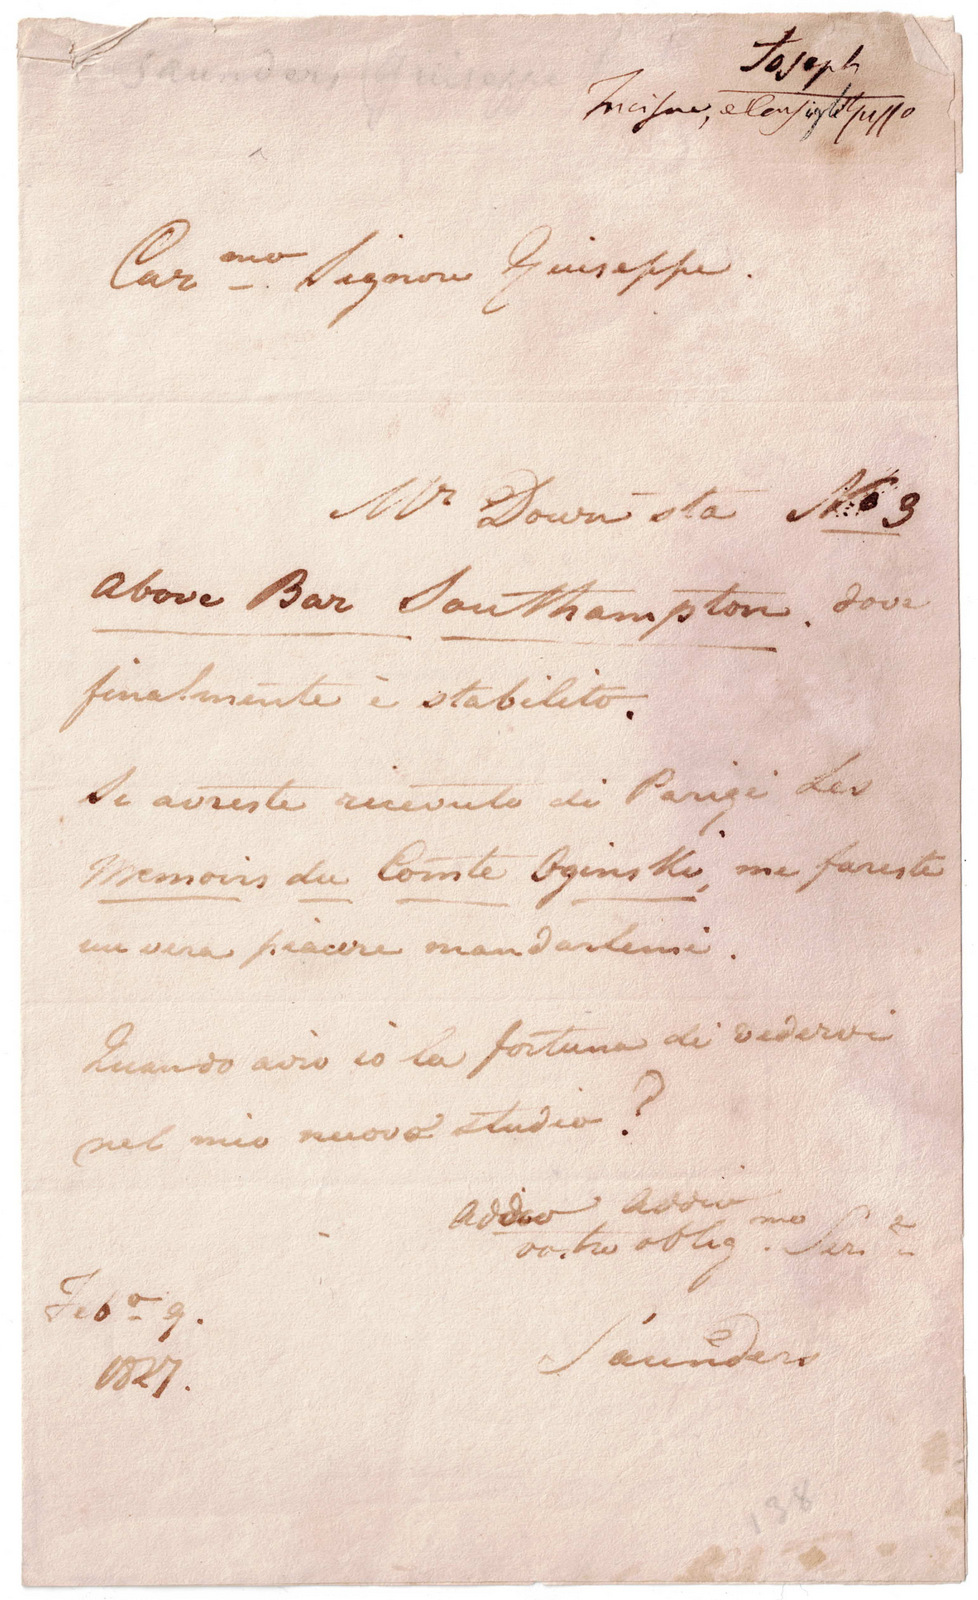 Saunders Giuseppe
Joseph
Incisore, e Consigl
Car.mo Signore Giuseppe.
Mr Down sta No 3
above Bar Southampton. dove
finalmente è stabilito.
Se avreste ricevuto di Parigi Les
Memoirs du Comte Oginski, me fareste
un vero piacere mandarlemi.
Quando avro io la fortuna di vedervi
nel mio nuovo studio?
Addio addio
vostro obligmo. Serve
Saunders
Febro 9.
1827.
138